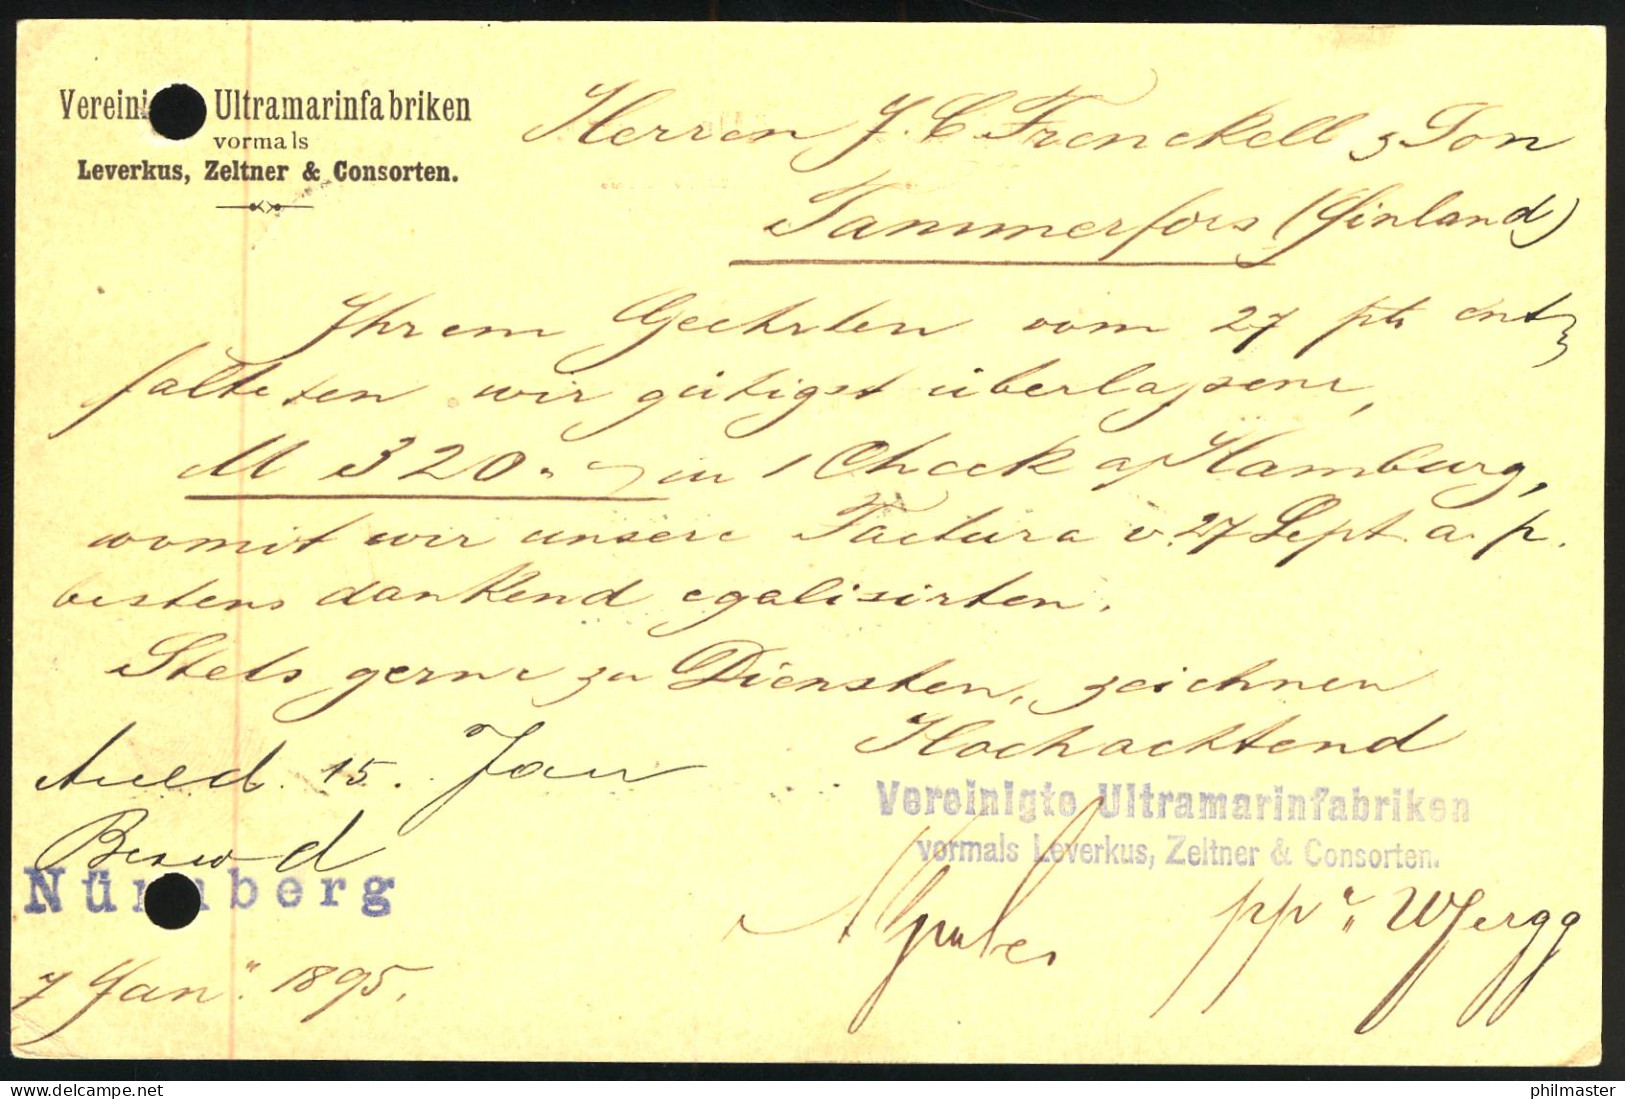 Vereini Ultramarinfabriken
vormals
Leverkus, Zeltner & Consorten.
Herren J. C. Frenckell & Son
Tammerfors (Finland)
Ihrem Geehrten vom 27 pto ent
falteten wir gütigst überlassene,
M 320.- in 1 Check a/Hamburg,
womit wir unsere Factura v. 27 Sept. a. p.
bestens dankend egalisirten.
Stets gerne zu Diensten, zeichnen
Hochachtend
15. Jan
Vereinigte Ultramarinfabriken
vormals Leverkus, Zeltner & Consorten.
Nürnberg
ppa
7 Jan. 1895.
philmaster